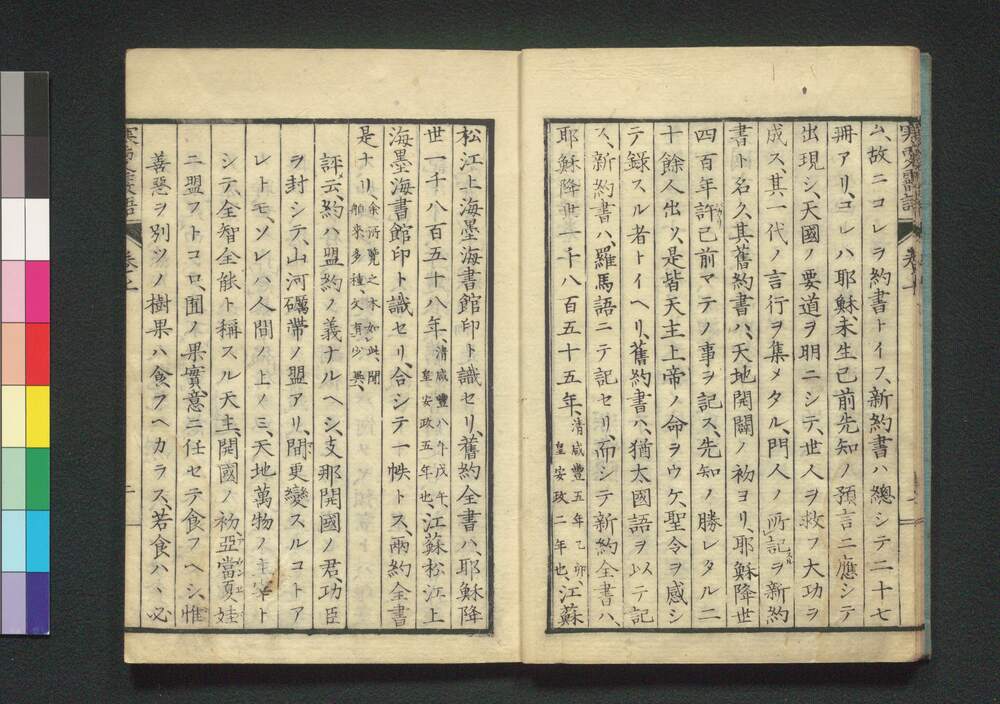 ム、故ニコレヲ約書トイフ、新約書ハ總シテ二十七
冊アリ、コレハ耶穌未生已前先知ノ預言ニ應シテ
出現シ、天國ノ要道ヲ明ニシテ、世人ヲ救フ大功ヲ
成ス、其一代ノ言行ヲ集メタル、門人ノ所記スルヲ新約
書ト名ク、其舊約書ハ、天地開闢ノ初ヨリ、耶穌降世
四百年許已前マテノ事ヲ記ス、先知ノ勝レタル二
十餘人出ツ、是皆天主上帝ノ命ヲウケ聖令ヲ感シ
テ録スル者トイヘリ、舊約書ハ、猶太國語ヲ以テ記
ス、新約書ハ、羅馬語ニテ記セリ、而シテ新約全書ハ、
耶穌降世一千八百五十五年、清咸豐五年乙卯、皇安政二年也、江蘇
松江上海墨海書館印ト識セリ、舊約全書ハ、耶穌降
世一千八百五十八年、清咸豐八年戊午、皇安政五年也、江蘇松江上
海墨海書館印ト識セリ、合シテ一帙トス、兩約全書
是ナリ、余所覽之本如此、聞舶來多種、文有少異、
評云、約ハ盟約ノ義ナルヘシ、支那開國ノ君、功臣
ヲ封シテ、山河礪帶ノ盟アリ、間更變スルコトア
レトモ、ソレハ人間ノ上ノミ、天地萬物ノ主宰ト
シテ、全智全能ト稱スル天主、開國ノ初亞當夏娃
ニ盟フトコロ、園ノ果實意ニ任セテ食フヘシ、惟
善惡ヲ別ツノ樹果ハ食フヘカラス、若食ハヽ必